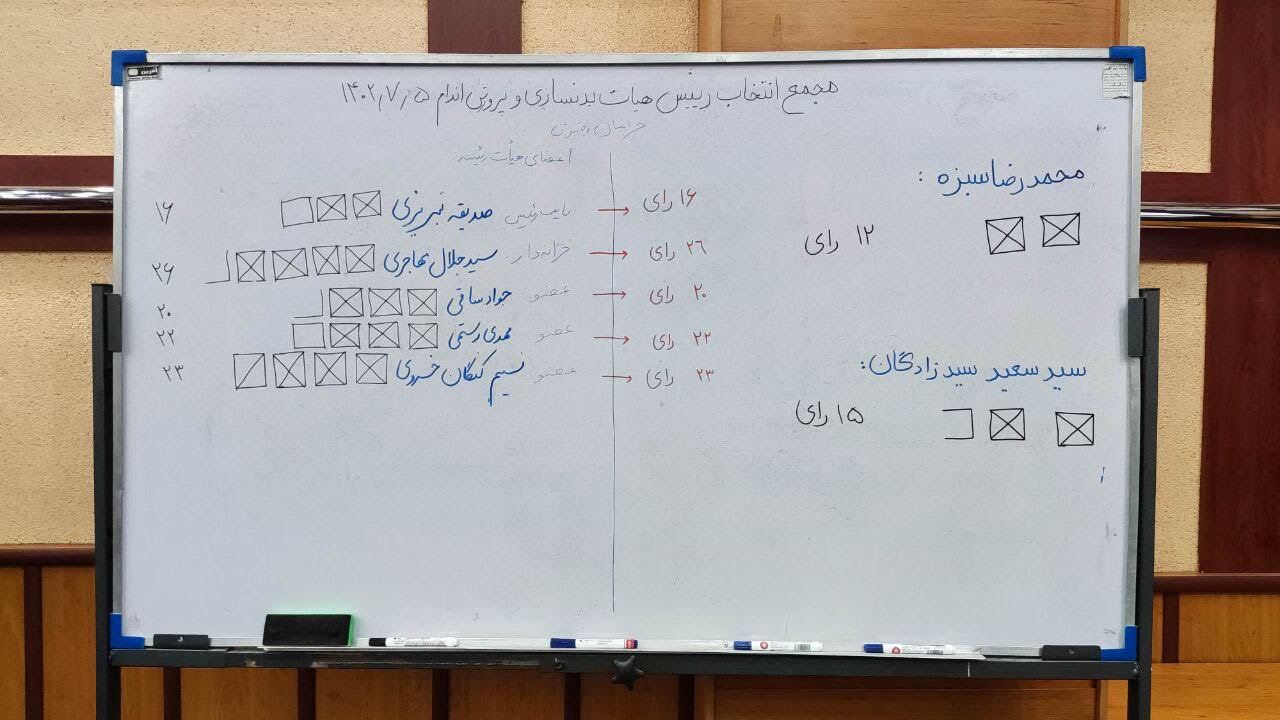 مجمع انتخاب رییس هیات بدنسازی و پرورش اندام ۱۴۰۲٫۷٫۵
خراسان رضوی
محمدرضا سبزه :
۱۲ رای
سید سعید سیدزادگان:
۱۵ رای
اعضای هیأت رئیسه:
۱۶ رای → نایب رئیس صدیقه تبریزی ۱۶
۲۶ رای → خزانه‌دار: سید جلال مهاجری ۲۶
۲۰ رای → عضو: جواد ساقی ۲۰
۲۲ رای → عضو مهدی رستمی ۲۲
۲۳ رای → عضو نسیم خسروی ۲۳